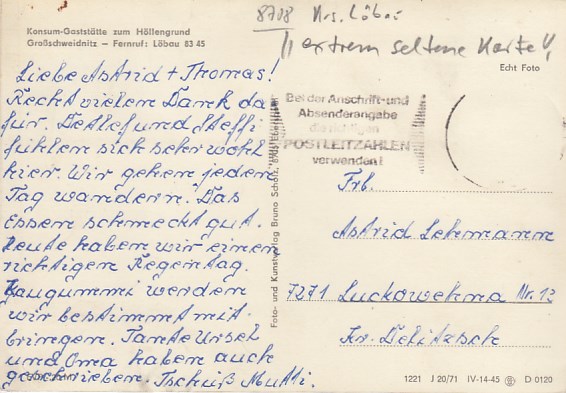 Konsum-Gaststätte zum Höllengrund
Großschweidnitz – Fernruf: Löbau 83 45
8708 Krs. Löbau
!! extrem seltene Karte !!
Echt Foto
Liebe Astrid + Thomas!
Recht vielen Dank da
für. Detlef und Steffi
fühlen sich sehr wohl
hier. Wir gehen jeden
Tag wandern. Das
Essen schmeckt gut.
Heute haben wir einen
richtigen Regentag.
Kaugummi werden
wir bestimmt mit
bringen. Tante Ursel
und Oma haben auch
geschrieben. Tschüß Mutti.
Bei der Anschrift-und
Absenderangabe
die richtigen
POSTLEITZAHLEN
verwenden!
Foto- und Kunstverlag Bruno Scholz,
Frl.
Astrid Lehmann
7271 Luckowehna Nr. 12
Kr. Delitzsch
1221 J 20/71 IV-14-45 D 0120